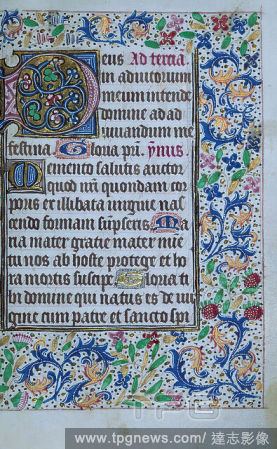 Deus Ad tercia
in adiutorium
meum intende
domine ad ad
iuuandum me
festina Gloria pri. ymnus
Memento salutis auctor
quod nri quondam cor
poris ex illibata uirgine nas
cendo formam sumpseris Ma
ria mater gracie mater mise
tu nos ab hoste protege et ho
ra mortis suscipe Gloria ti
bi domine qui natus es de uir
gine cum patre et sancto spi
TPG
www.tpgnews.com/達志影像